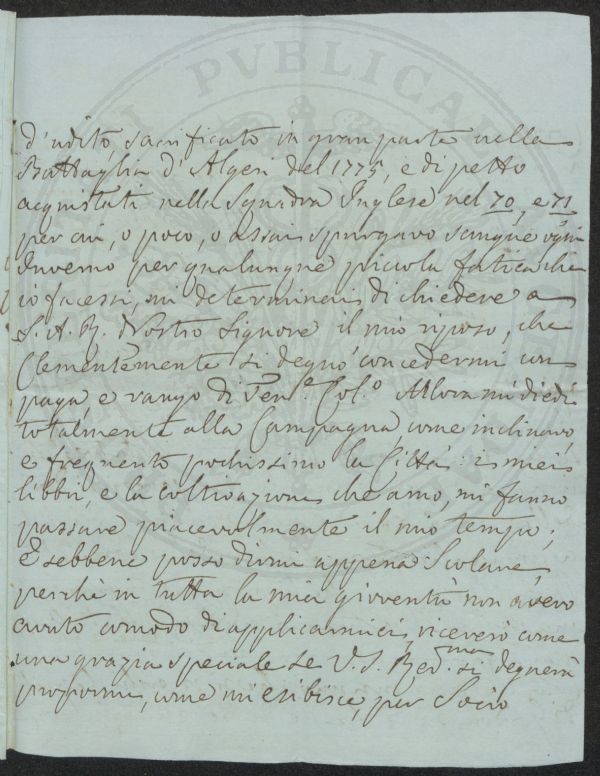 d'udito, sacrificato in gran parte nella
Battaglia d'Algeri del 1775, e di petto
acquistati nella Squadra Inglese nel 70, e 71
per cui, o poco, o assai spurgavo sangue ogni
Inverno per qualunque piccola fatica che
io facessi, mi determinai di chiedere a
S. A. R. Nostro Signore il mio riposo, che
Clementemente si degnò concedermi con
paga, e rango di Ten.e Col.o Allora mi diedi
totalmente alla Campagna, come inclinavo,
e frequento pochissimo la Città: i miei
libbri, e la coltivazione che amo, mi fanno
passare piacevolmente il mio tempo;
E sebbene posso dirmi appena Scolare,
perchè in tutta la mia gioventù non avevo
avuto comodo di applicarmici, riceverò come
una grazia speciale se V. S. Rev.ma si degnerà
propormi, come mi esibisce, per Socio
PVBLICAE